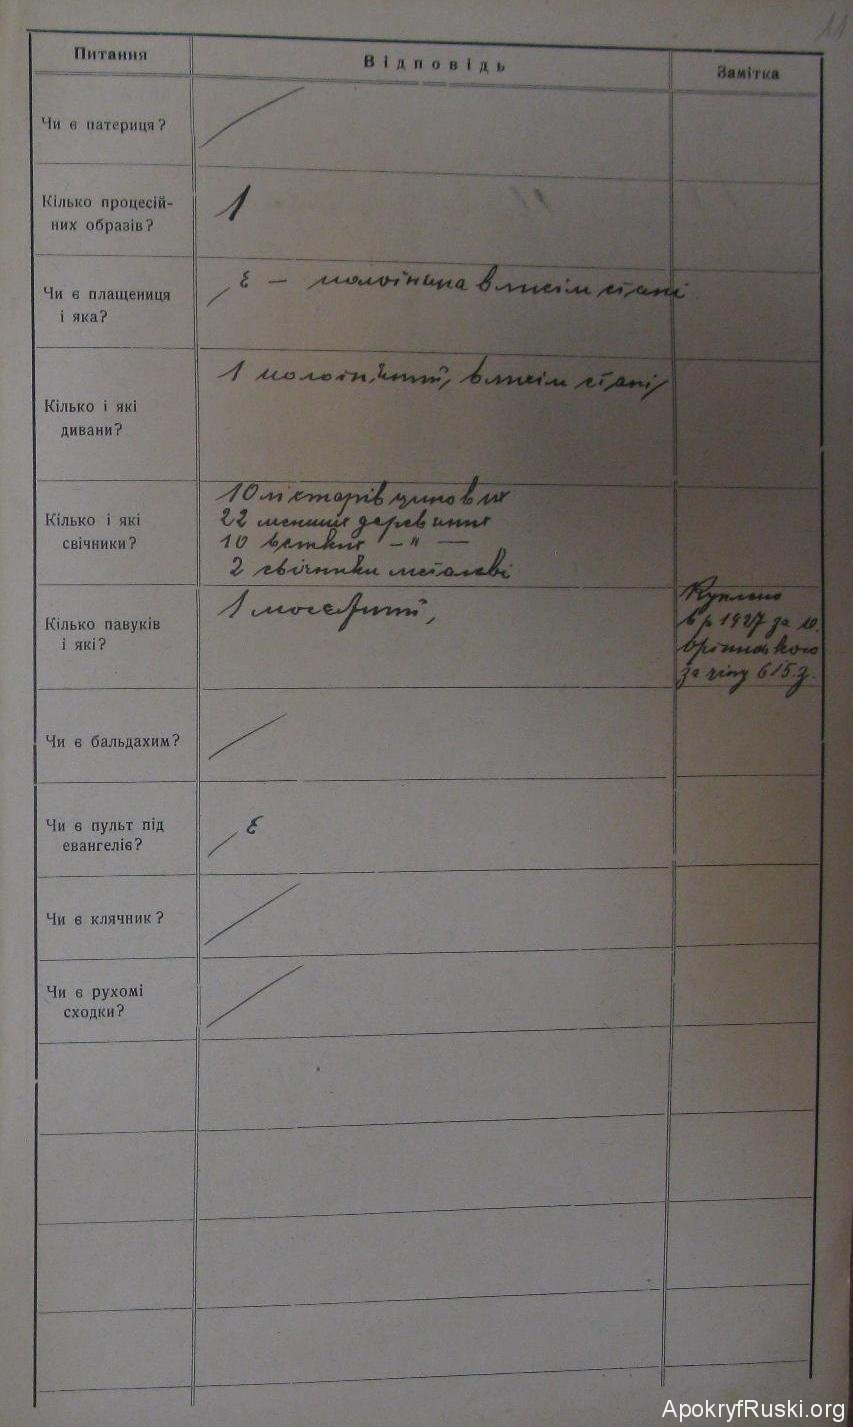 11
Питання
Відповідь
Замітка
Чи є патериця?
Кілько процесій-
них образів?
1
Чи є плащениця
і яка?
Є — полотняна в лисім стані
Кілько і які
дивани?
1 полотняний, в лисім стані,
Кілько і які
свічники?
10 ліхтарів цинових
22 менших деревяних
10 — " —
2 свічники металеві
Кілько павуків
і які?
1 мосежний,
Куплено
в р 1927 за о.
за ціну 615 з.
Чи є бальдахим?
Чи є пульт під
евангеліє?
Є
Чи є клячник?
Чи є рухомі
сходки?
ApokryfRuski.org